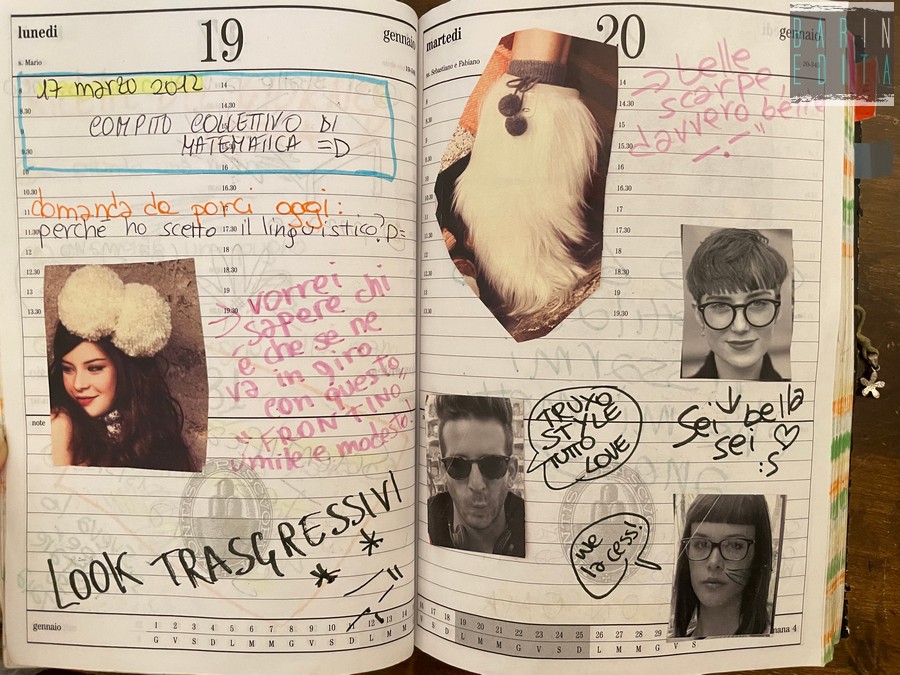 lunedì
19
gennaio
s. Mario
17 marzo 2012
COMPITO COLLETTIVO DI
MATEMATICA =D
domanda da porci oggi:
perché ho scelto il linguistico? D=
→ vorrei
sapere chi
è che se ne
va in giro
con questo
"FRONTINO"
umile e modesto!
LOOK TRASGRESSIVI
note
8.30
9.30
10
10.30
11
11.30
12
12.30
13
13.30
14
14.30
15
16
16.30
17.30
18
18.30
19
19.30
gennaio
1 2 3 4 5 6 7 8 9 10 11 12 13 14
G V S D L M M G V S D L M M
martedì
20
gennaio
ss. Sebastiano e Fabiano
→ belle
scarpe
davvero belle
14
14.30
15
15.30
16
16.30
17
17.30
18
18.30
19
19.30
TRUXO
STYLE
TUTTO
LOVE
Sei bella
sei ♡
:S
we
la cess!
16 17 18 19 20 21 22 23 24 25 26 27 28 29
V S D L M M G V S D L M M G V S
BAR IN
EDITA